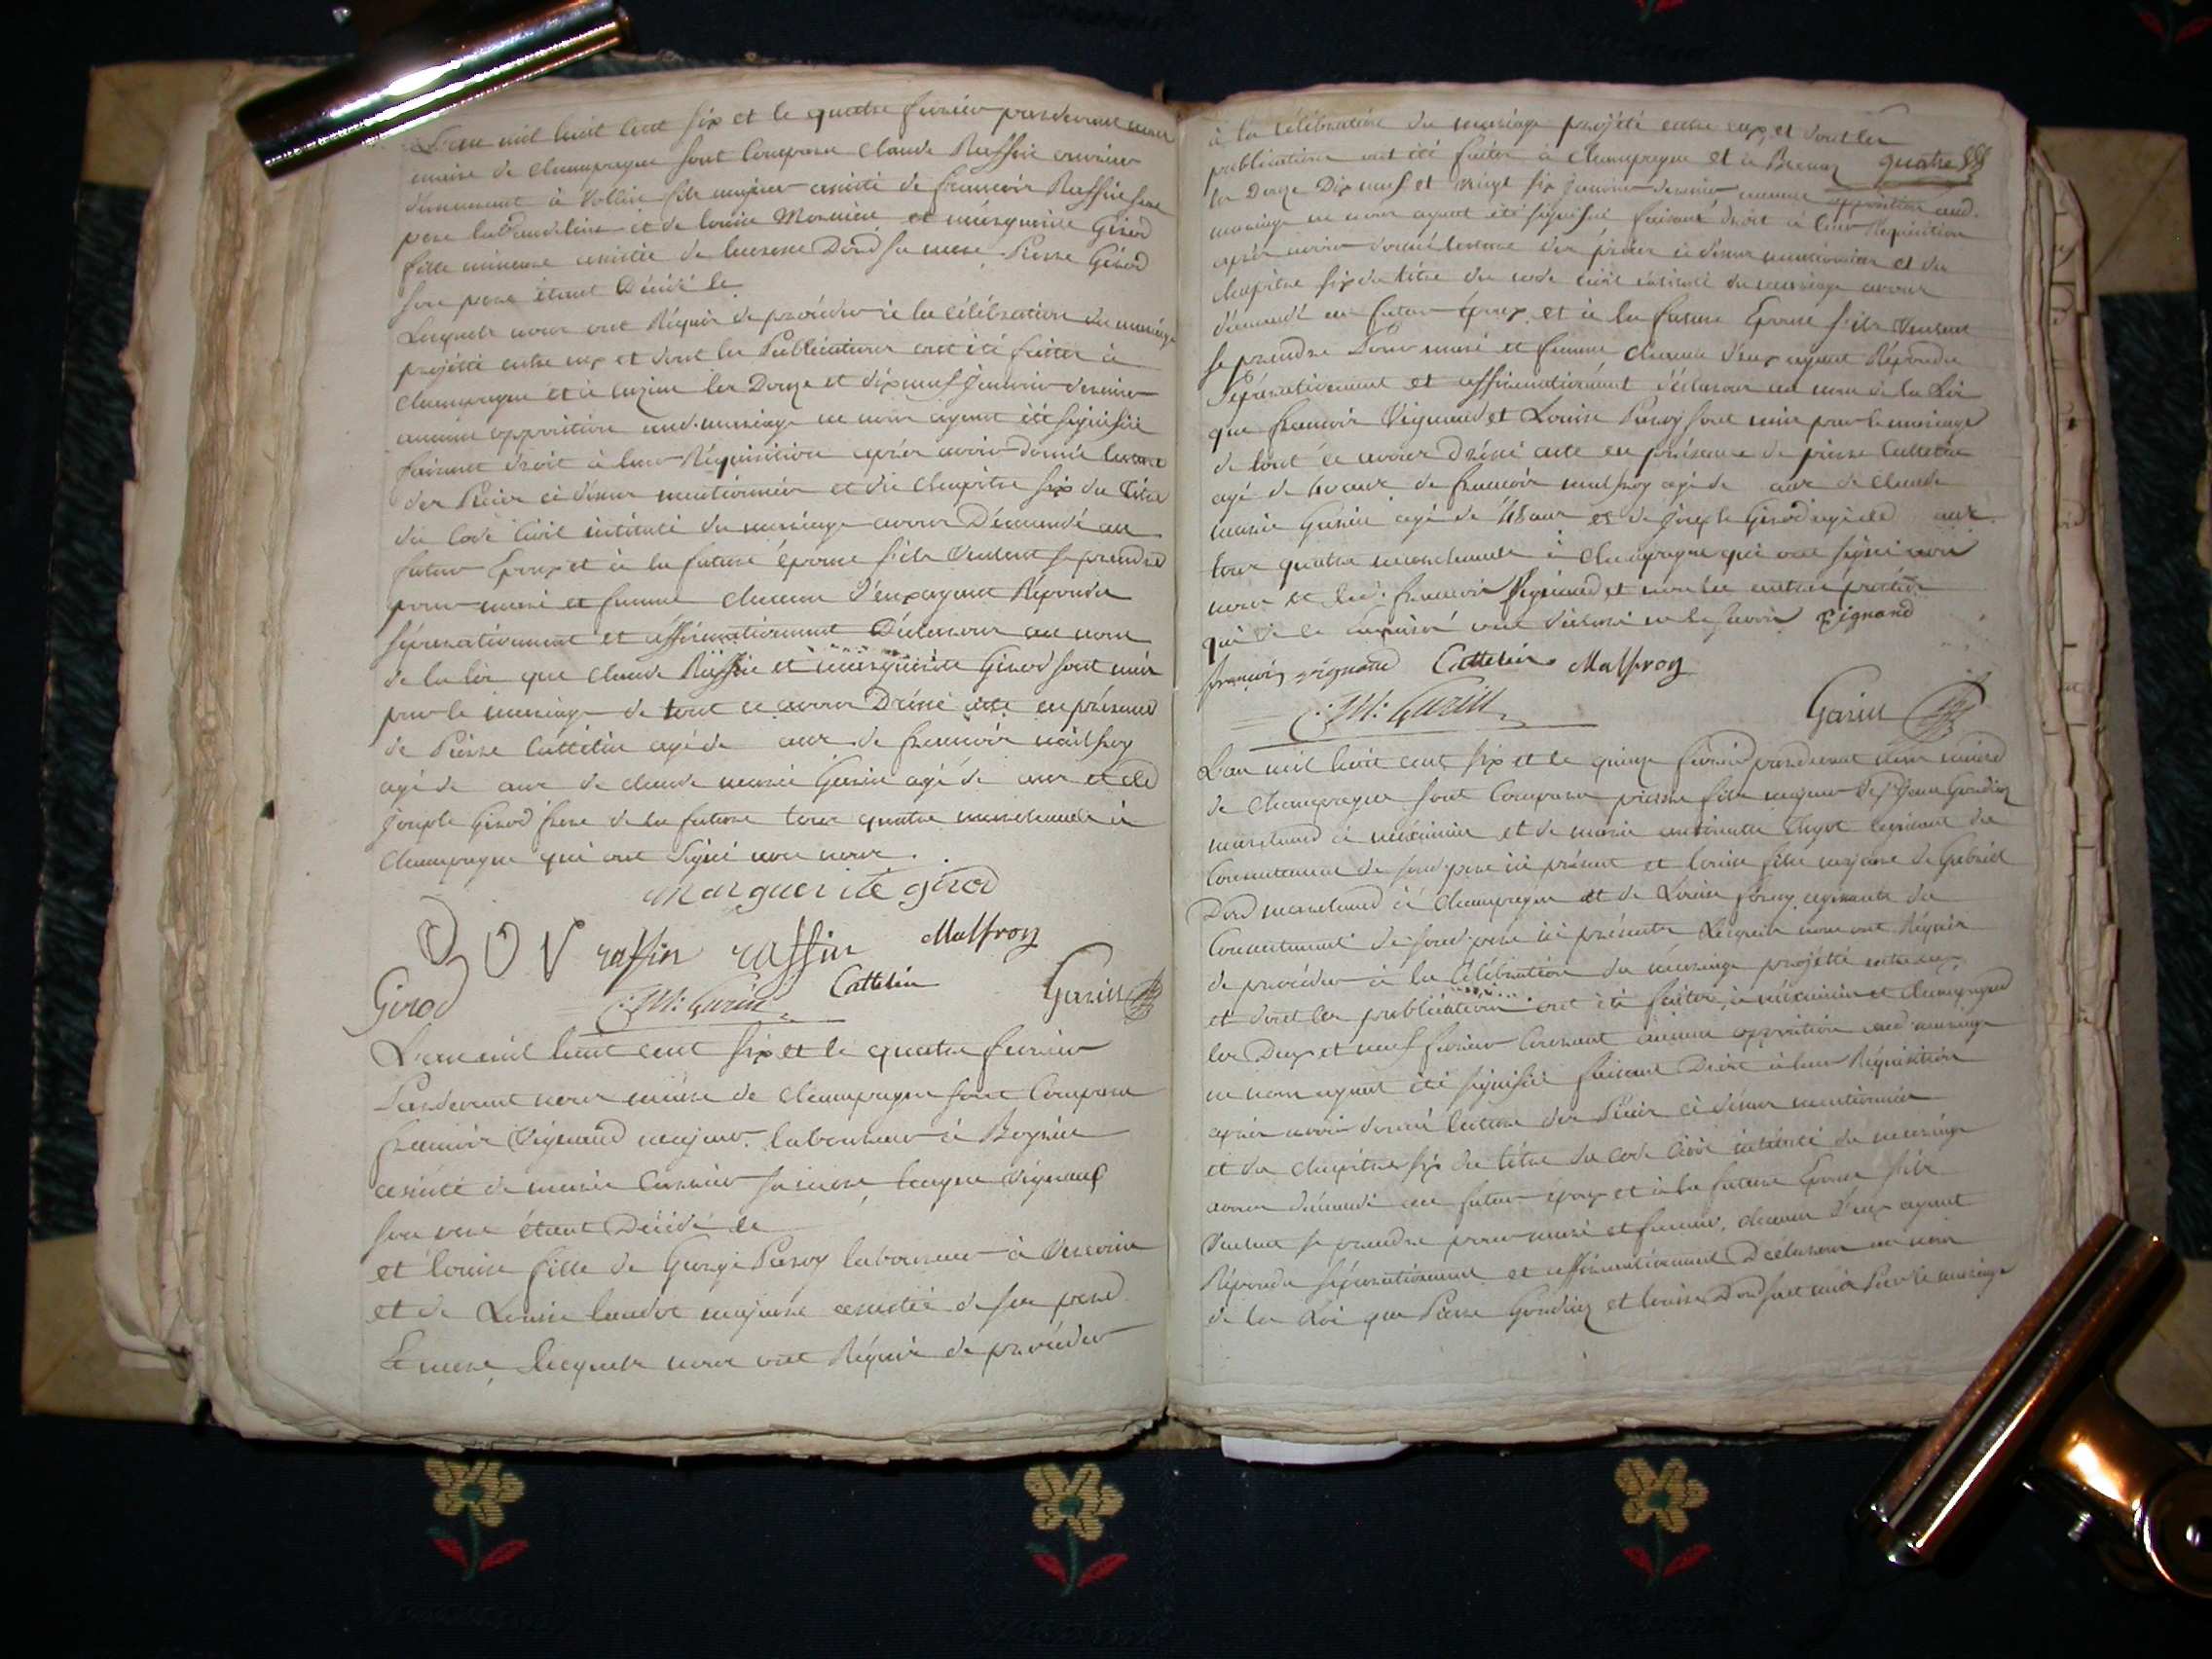 L'an mil huit cent six et le quatre fevrier pardevant nous
maire de Champagne sont Comparu Claude Raffin
à fils majeur assisté de francois Raffin son
pere et de louise et marguerite Girod
fille mineure assistée de Dord sa mere Pierre Girod
son pere étant Décédé le
Lesquels nous ont Réquis de procéder à la célébration du mariage
projetté entre eux et dont les Publications ont été faites à
champagne et à les Douze et dix neuf Janvier dernier
aucune opposition aud. mariage ne nous ayant été signifiée
faisant droit à leur Réquisition après avoir donné lecture
des Pièces ci dessus mentionnées et du Chapitre six du titre
du Code Civil intitulé du mariage avons Démandé au
futur Epoux et à la future épouse s'ils veulent se prendre
pour mari et femme chacun d'eux ayant Répondu
séparativement et affirmativement Déclarons au nom
de la loi que Claude Raffin et marguerite Girod sont unis
par le mariage de tout ce avons Dréssé acte en présence
de Pierre Cattelin agé de ans de francois malfroy
agé de ans de claude marie Garin agé de ans et de
Joseph Girod frere de la future tous quatre marchands à
Champagne qui ont signé avec nous.
marguerite girod
raffin raffin Malfroy
Girod C: M: Garin Cattelin Garin
L'an mil huit cent six et le quatre fevrier
Pardevant nous maire de Champagne sont Comparu
francois Vignand majeur laboureur à
assisté de marie sa mere, Vignand
son pere étant Décédé le
et louise fille de George Pavoy laboureur à
et de Louise majeure assistée de son pere
Et mere, lesquels nous ont Réquis de procéder
à la célébration du mariage projété entre eux et dont les
publications ont été faites à Champagne et à
les Douze Dix neuf et vingt six Janvier dernier aucune opposition aud.
mariage ne nous ayant été signifiée faisant droit à leur Réquisition
après avoir donné lecture des pièces ci dessus mentionnées et du
chapitre six du titre du code civil intitulé du mariage avons
démandé au futur époux et à la future Epouse s'ils veulent
se prendre Pour mari et femme chacun d'eux ayant Répondu
Séparativement et affirmativement déclarons au nom de la Loi
que francois Vignand et Louise Pavoy sont unis par le mariage
de tout ce avons Dréssé acte en présence de pierre Cattelin
agé de ans de francois malfroy agé de ans de Claude
marie Garin agé de 48 ans et de Joseph Girod agé de ans
tous quatre marchands à Champagne qui ont signé avec
nous et led. francois Vignand et non les autres parties
qui de ce ont déclaré ne le savoir Vignand
francois vignand Cattelin Malfroy
C: M: Garin Garin
L'an mil huit cent six et le quinze fevrier pardevant nous maire
de Champagne sont Comparu pierre fils majeur de Sr. Jean
marchand à et de marie agissant du
Consentement de son pere ici présent et louise fille majeure de Gabriel
Dord marchand à Champagne et de Louise agissante du
Consentement de son pere ici présente Lesquels nous ont Réquis
de procéder à la célébration du mariage projetté entre eux
et dont les publications ont été faites à et Champagne
les Deux et neuf fevrier Courant aucune opposition aud. mariage
ne nous ayant été signifiée faisant Droit à leur Réquisition
après avoir donné lecture des Pièces ci dessus mentionnées
et du chapitre six du titre du Code Civil intitulé du mariage
avons demandé au futur époux et à la future Epouse s'ils
veulent se prendre pour mari et femme, chacun d'eux ayant
Répondu séparativement et affirmativement Déclarons au nom
de la Loi que Pierre et louise Dord sont unis Par le mariage